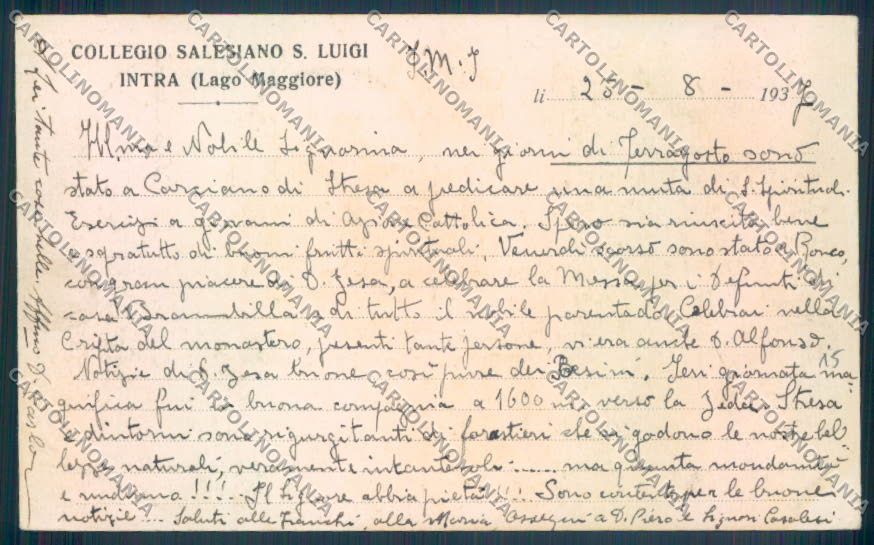 COLLEGIO SALESIANO S. LUIGI
INTRA (Lago Maggiore)
J.M.J
li 25 - 8 - 1937
Ill.ma e Nobile Signorina, nei giorni di Ferragosto sono
stato a Carciano di Stresa a predicare una muta di S. Spirituali
Esercizi a giovani di Azione Cattolica. Spero sia riuscita bene
e sopratutto di buoni frutti spirituali. Venerdì scorso sono stato a Ronco,
con gran piacere di D. Zesa, a celebrare la Messa per i Defunti di
casa Brambilla e di tutto il nobile parentado. Celebrai nella
Cripta del monastero, presenti tante persone, vi era anche D. Alfonso.
Notizie di D. Zesa buone così pure dei Besini. Ieri giornata ma-
gnifica fui in buona compagnia a 1600 m. verso la Zeda. Stresa 15
e dintorni sono rigurgitanti di forestieri che si godono le nostre bel-
lezze naturali, veramente incantevoli...... ma quanta mondanità
e nudismo !!!... Il Signore abbia pietà !!! Sono contento per le buone
notizie... Saluti alle Franchi, alla Mamma Ossequi a D. Piero e Signori Casalesi
Per tante cose belle Aff.mo D.
CARTOLINOMANIA